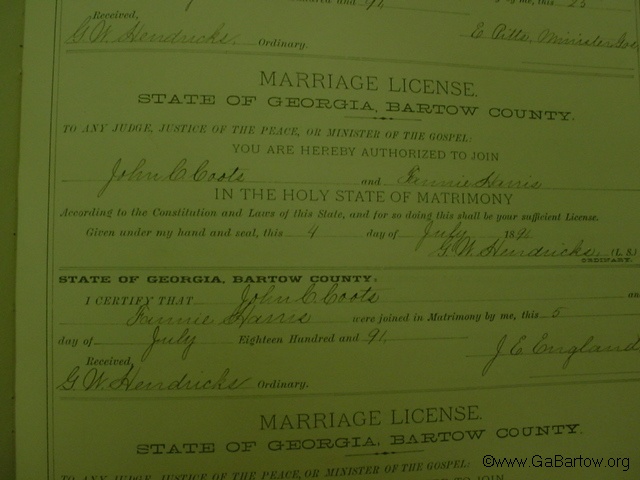 Hundred and 91, by me, this 25
Received,
G. W. Hendricks, Ordinary. E. Pitts, Minister
MARRIAGE LICENSE.
STATE OF GEORGIA, BARTOW COUNTY.
TO ANY JUDGE, JUSTICE OF THE PEACE, OR MINISTER OF THE GOSPEL:
YOU ARE HEREBY AUTHORIZED TO JOIN
John C Coots and Fannie Harris
IN THE HOLY STATE OF MATRIMONY
According to the Constitution and Laws of this State, and for so doing this shall be your sufficient License.
Given under my hand and seal, this 4 day of July 1891
G. W. Hendricks, (L. S.)
ORDINARY.
STATE OF GEORGIA, BARTOW COUNTY:
I CERTIFY THAT John C. Coots an
Fannie Harris were joined in Matrimony by me, this 5
day of July Eighteen Hundred and 91. J. E. England
Received,
G. W. Hendricks Ordinary.
MARRIAGE LICENSE.
STATE OF GEORGIA, BARTOW COUNTY.
TO ANY JUDGE, JUSTICE OF THE PEACE, OR MINISTER OF THE GOSPEL:
©www.GaBartow.org